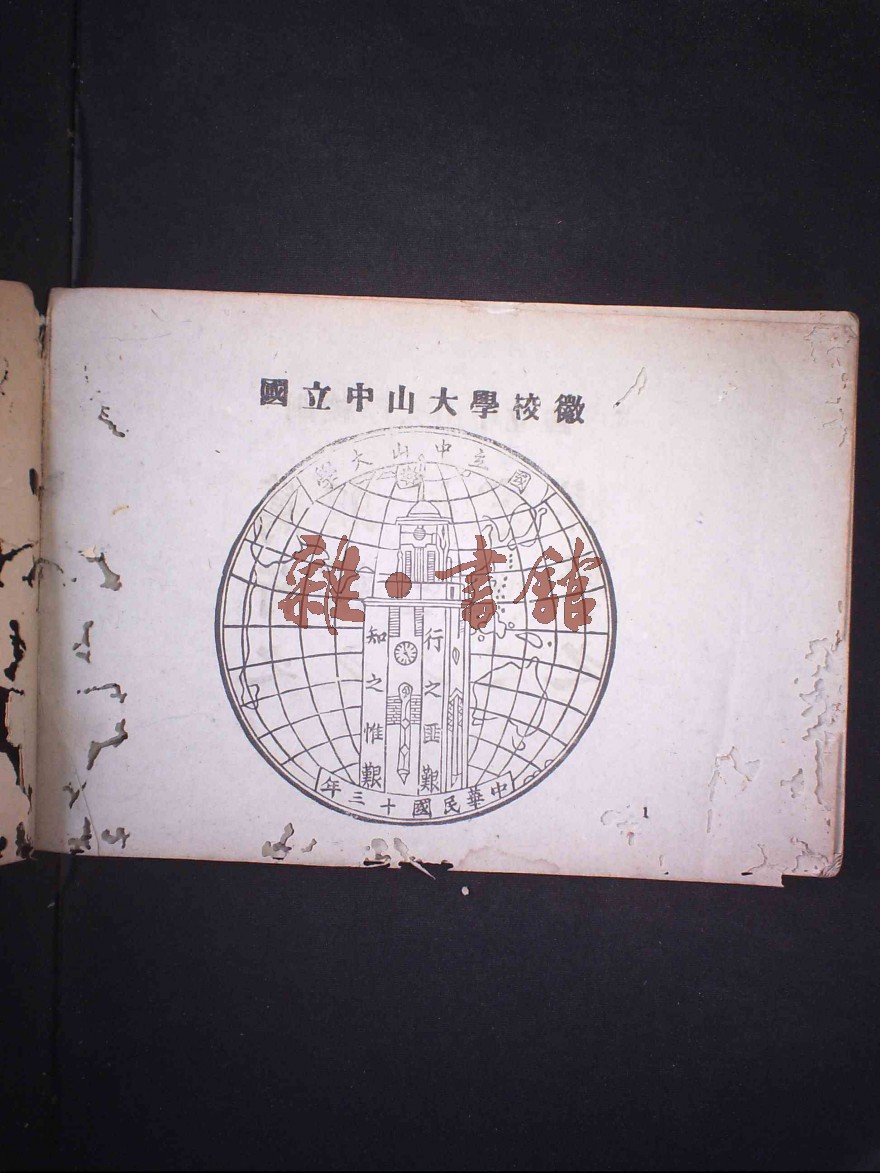 國立中山大學校徽
國立中山大學
雜·書館
行之匪艱
知之惟艱
中華民國十三年
1